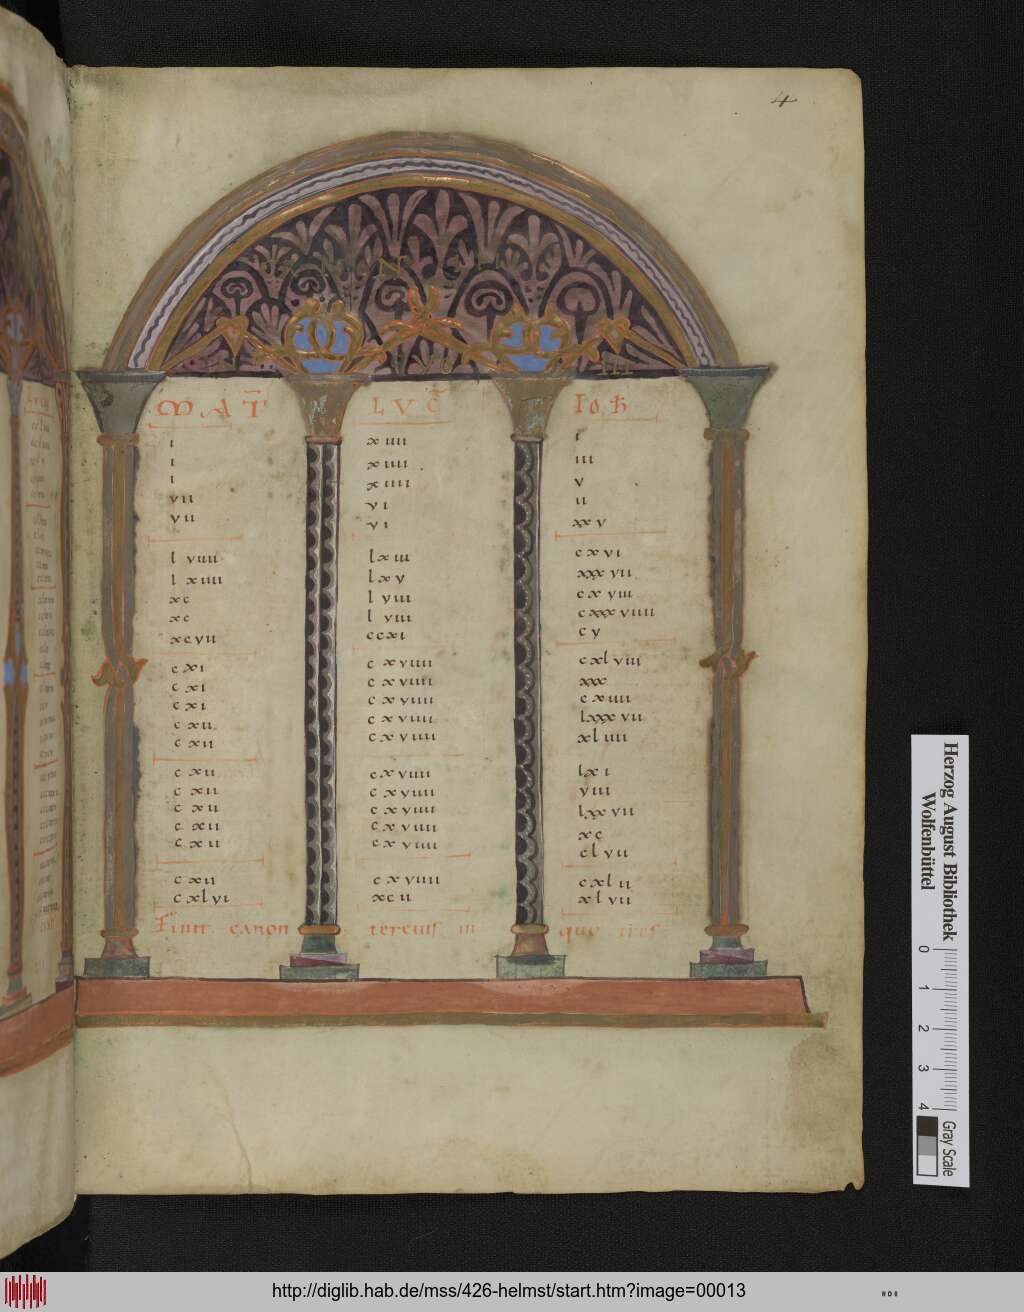 4
CANON
III
MAT̄ LVC̄ IOH̄
i xiiii i
i xiiii iii
i xiiii v
vii vi ii
vii vi xxv
lviiii lxiii cxvi
lxiiii lxv xxxvii
xc lviii cxviii
xc lviii cxxxviiii
xcvii ccxi cv
cxi cxviiii cxlviii
cxi cxviiii xxx
cxi cxviiii cxiiii
cxii cxviiii lxxxvii
cxii cxviiii xliiii
cxii cxviiii lxi
cxii cxviiii viii
cxii cxviiii lxxvii
cxii cxviiii xc
cxii cxviiii clvii
cxii cxviiii cxlii
cxlvi xcii xlvii
Finit canon tercius in quo tres
Herzog August Bibliothek
Wolfenbüttel
0 1 2 3 4
Gray Scale
http://diglib.hab.de/mss/426-helmst/start.htm?image=00013